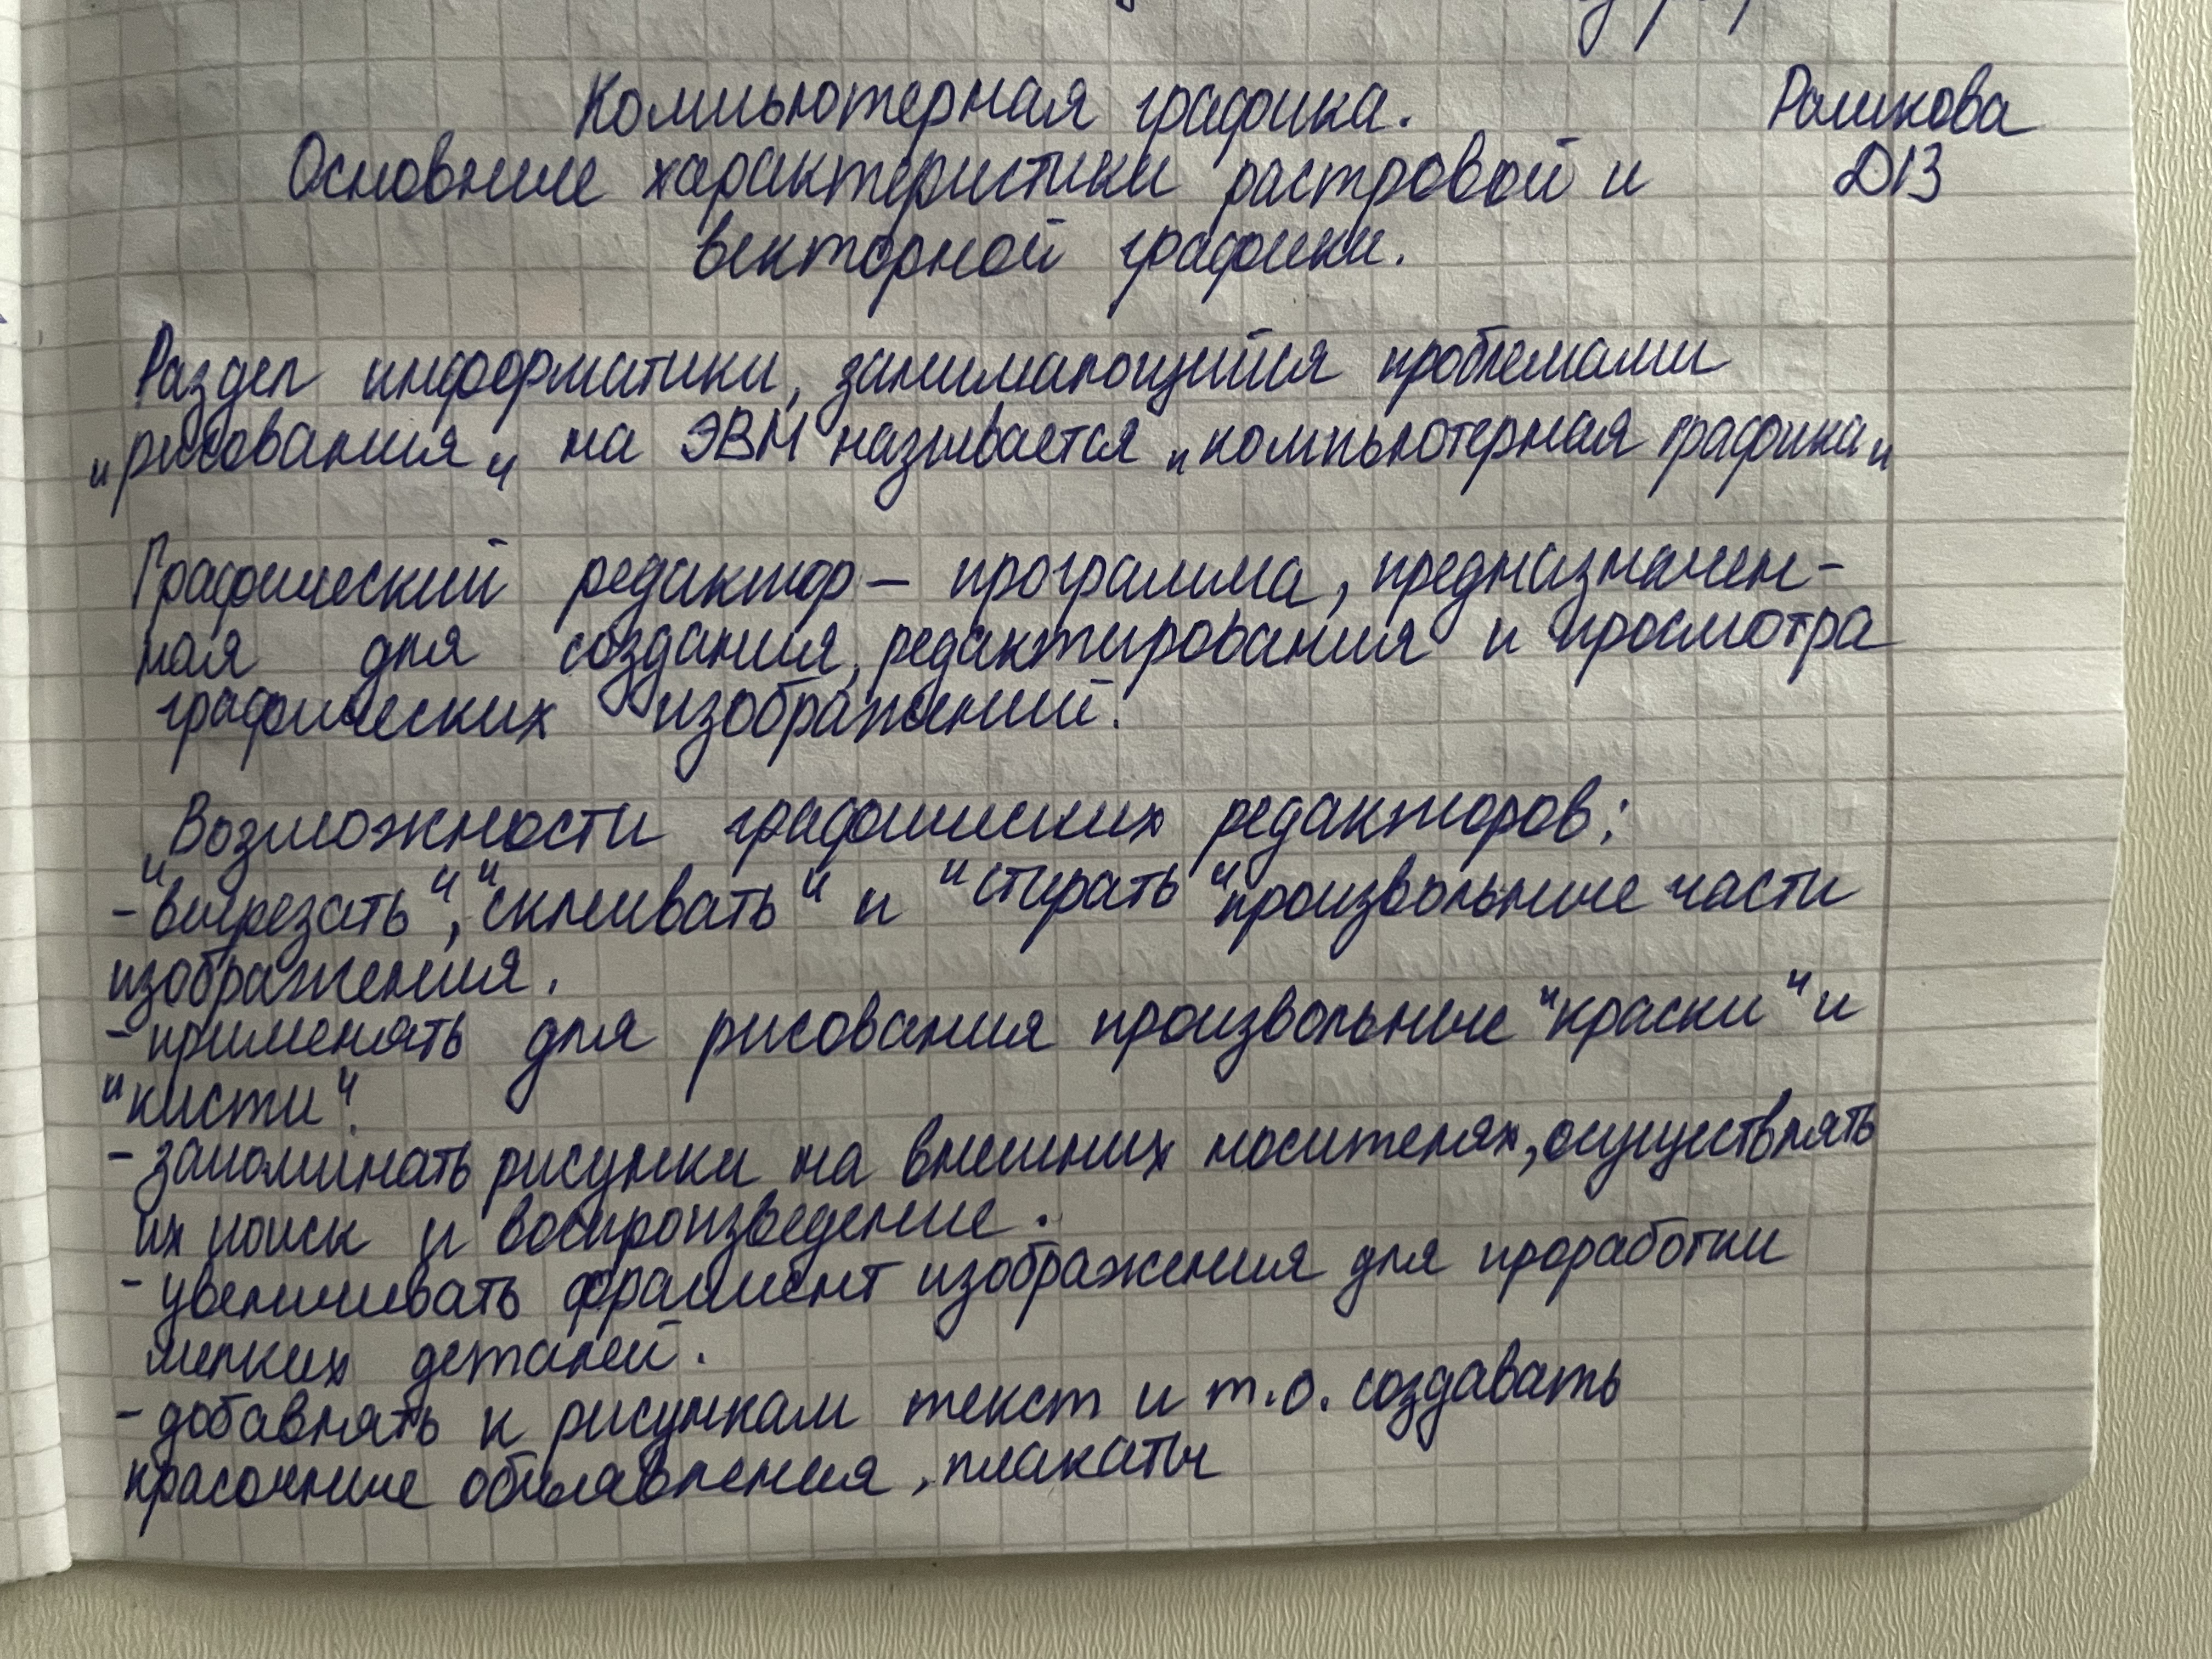 Компьютерная графика.
Рашкова
Основные характеристики растровой и
Д13
векторной графики.
Раздел информатики, занимающийся проблемами
"рисования" на ЭВМ называется "компьютерная графика"
Графический редактор – программа, предназначен-
ная для создания, редактирования и просмотра
графических изображений.
Возможности графических редакторов:
- "вырезать", "склеивать" и "стирать" произвольные части
изображения.
- применять для рисования произвольные "краски" и
"кисти".
- запоминать рисунки на внешних носителях, осуществлять
их поиск и воспроизведение.
- увеличивать фрагмент изображения для проработки
мелких деталей.
- добавлять к рисункам текст и т.о. создавать
красочные объявления, плакаты